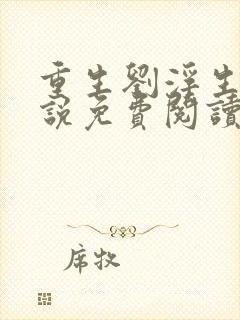 重生劉淫生
說免費閱讀
席牧